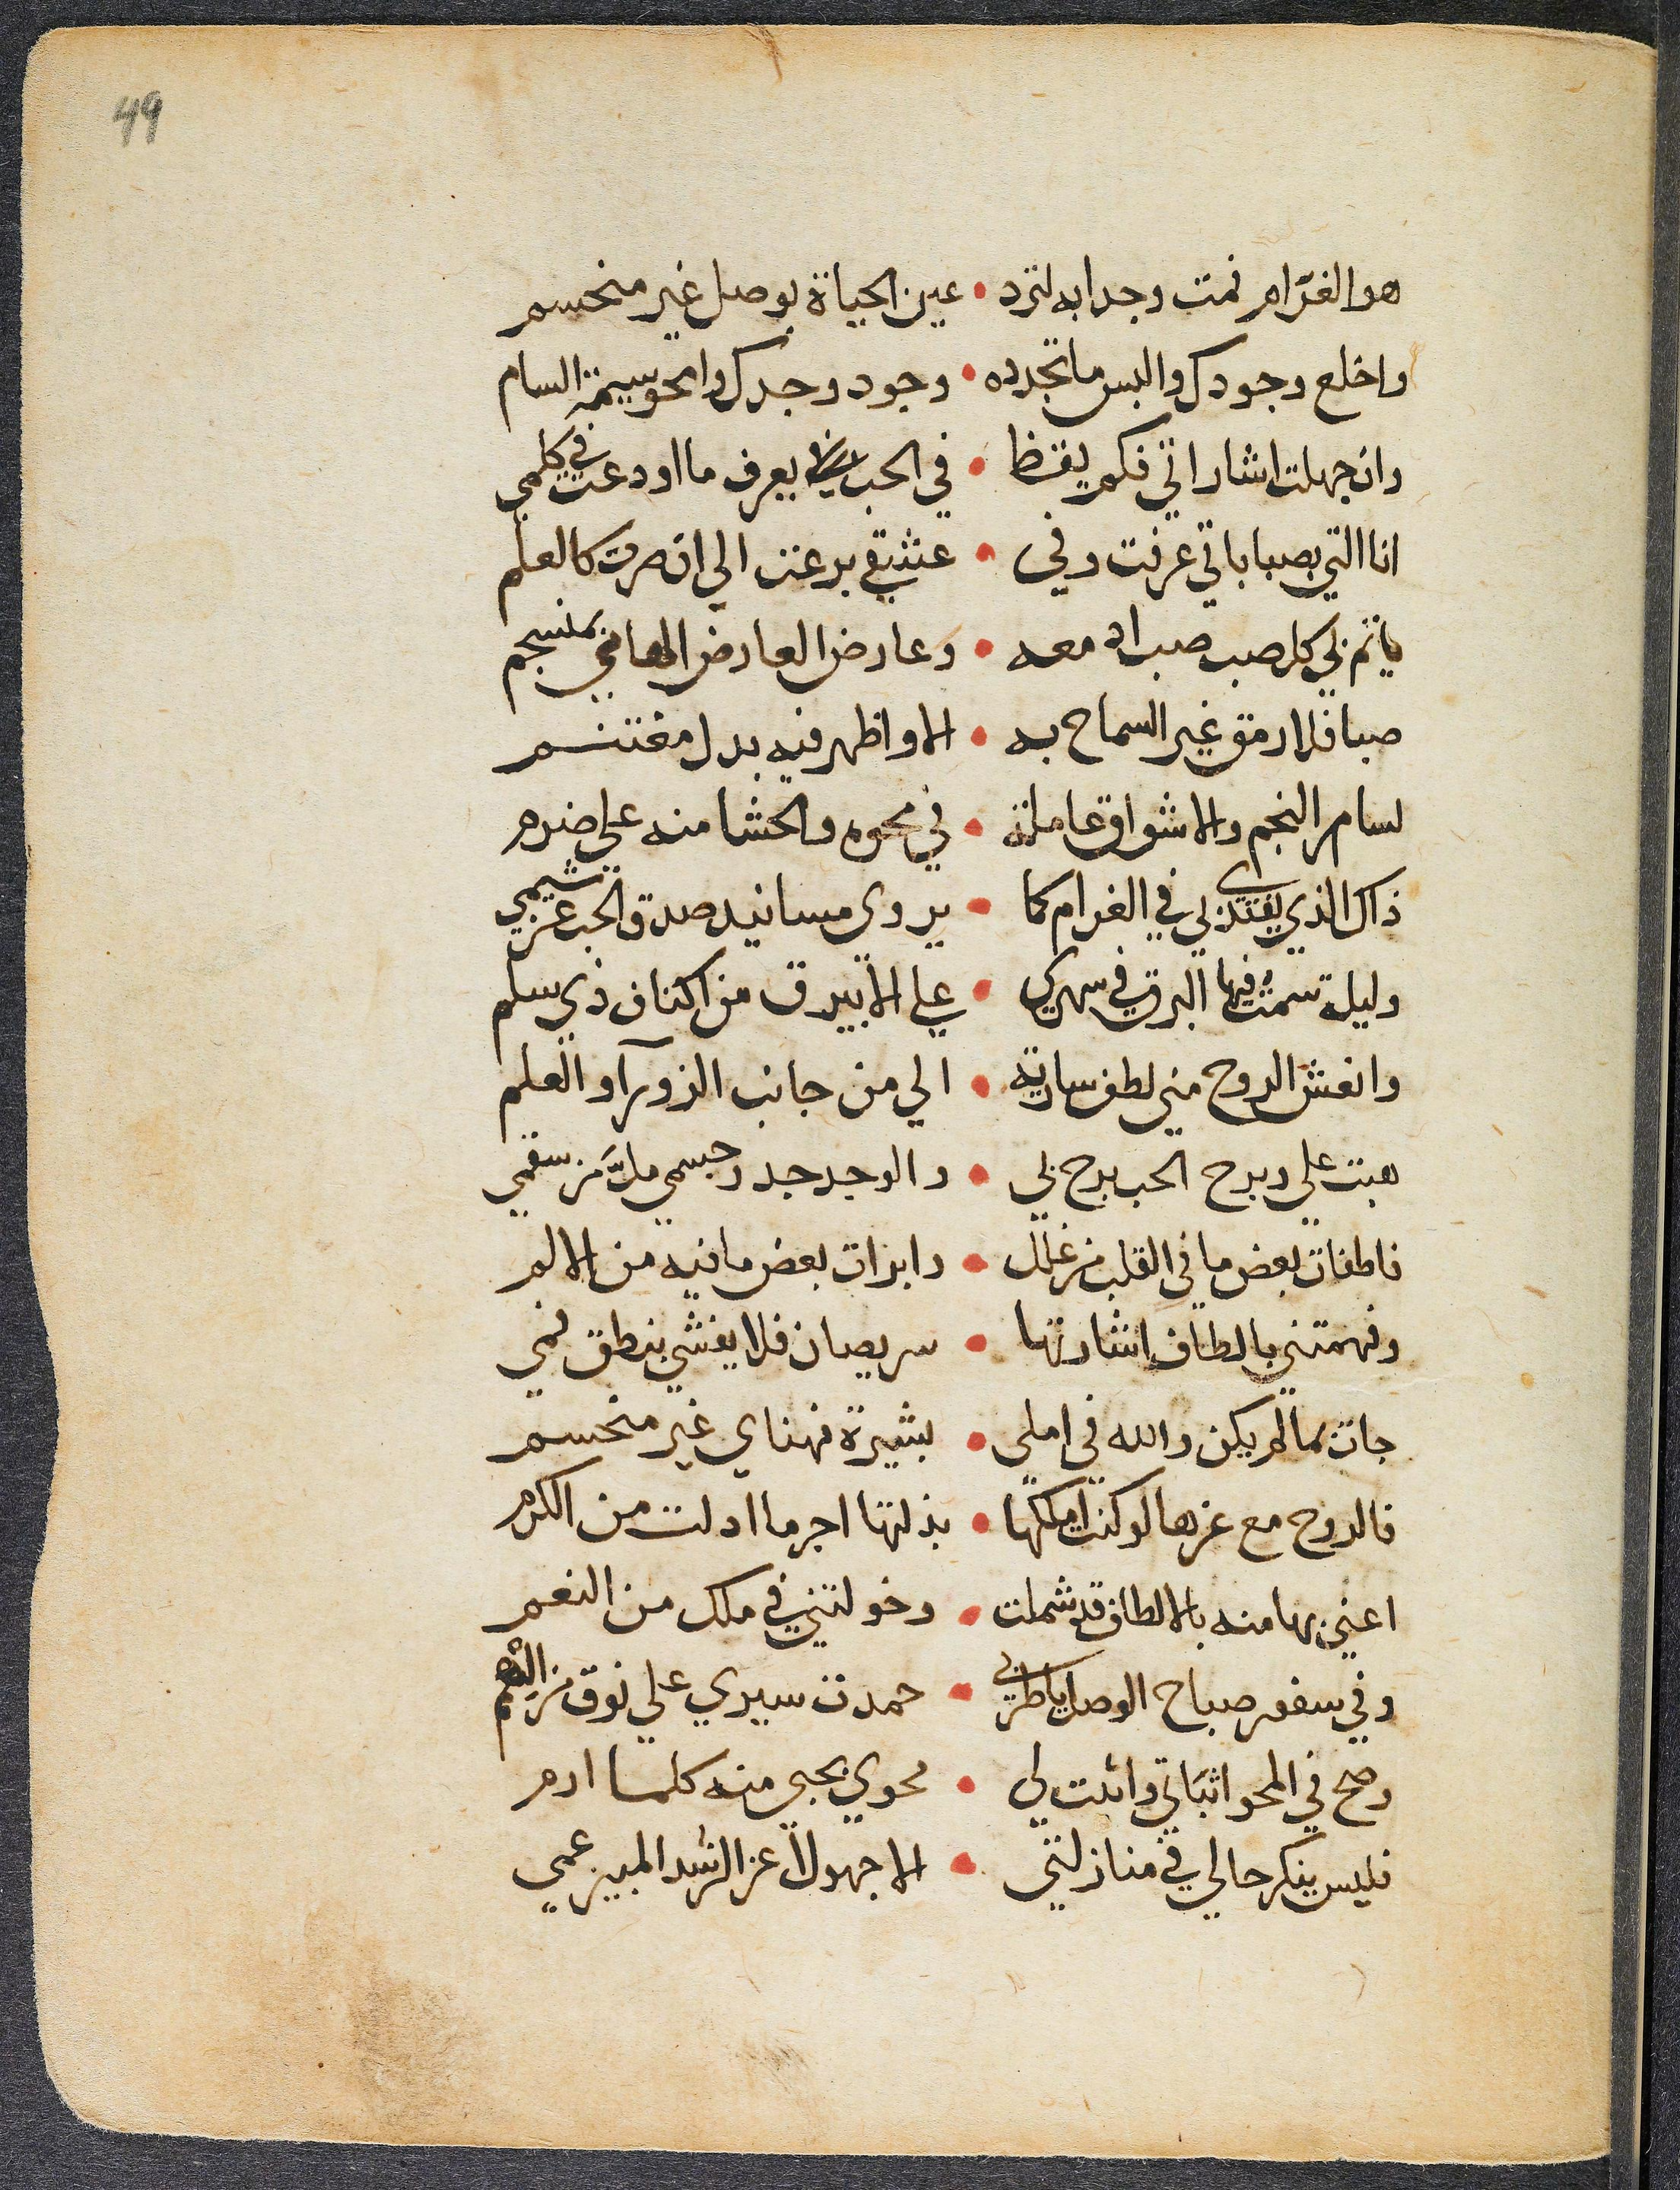 49
هو الغرام فمت وجدا به لترد • عين الحياة بوصل غير منحسم
واخلع وجودك والبس ما تجدده • وجود وجدك وامحو سيمة السام
وان جهلت اشاراتي فكم يقظا • في الحب يعرف ما اودعت في كلمي
انا التي بصباباتي عرفت وفي • عشقي برعت الي ان صرت كالعلم
ياتم بي كل صب صب ادمعه • وعارض العارض الهامي بمنسجم
صبا فلا رمق غير السماح به • الا واظهر فيه بدل مغتنم
لسامر النجم والاشواق عاملة • في محوه والحشا منه علي ضرم
ذاك الذي يقتدي بي في الغرام كما • يروي مسانيد صدق الحب عن شيمي
وليلة شمت فيها البرق في سهري • علي الابيرق من اكناف ذي سلم
وانعش الروح مني لطف سارية • الي من جانب الزورآ والعلم
هبت علي وبرح الحب برح بي • والوجد جد وجسمي مل من سقمي
فاطفات بعض ما في القلب من غلل • وابرات بعض ما فيه من الالم
وفهمتني بالطاف اشارتها • سر يصان فلا يفشي بنطق فمي
جات بما لم يكن والله في املي • بشيرة فهناي غير منحسم
فالروح مع عزها لو كنت املكها • بذلتها اجر ما اولت من الكرم
اعني بها منه بالالطاف قد شملت • وخولتني في ملك من النعم
وفي سفور صباح الوصل ياطربي • حمدت سيري علي نوق من الهمم
وصح في المحو اثباتي واثبت لي • محوي بحبي منه كلما ارم
فليس ينكر حالي في منازلتي • الا جهولا عن الرشد المبين عمي